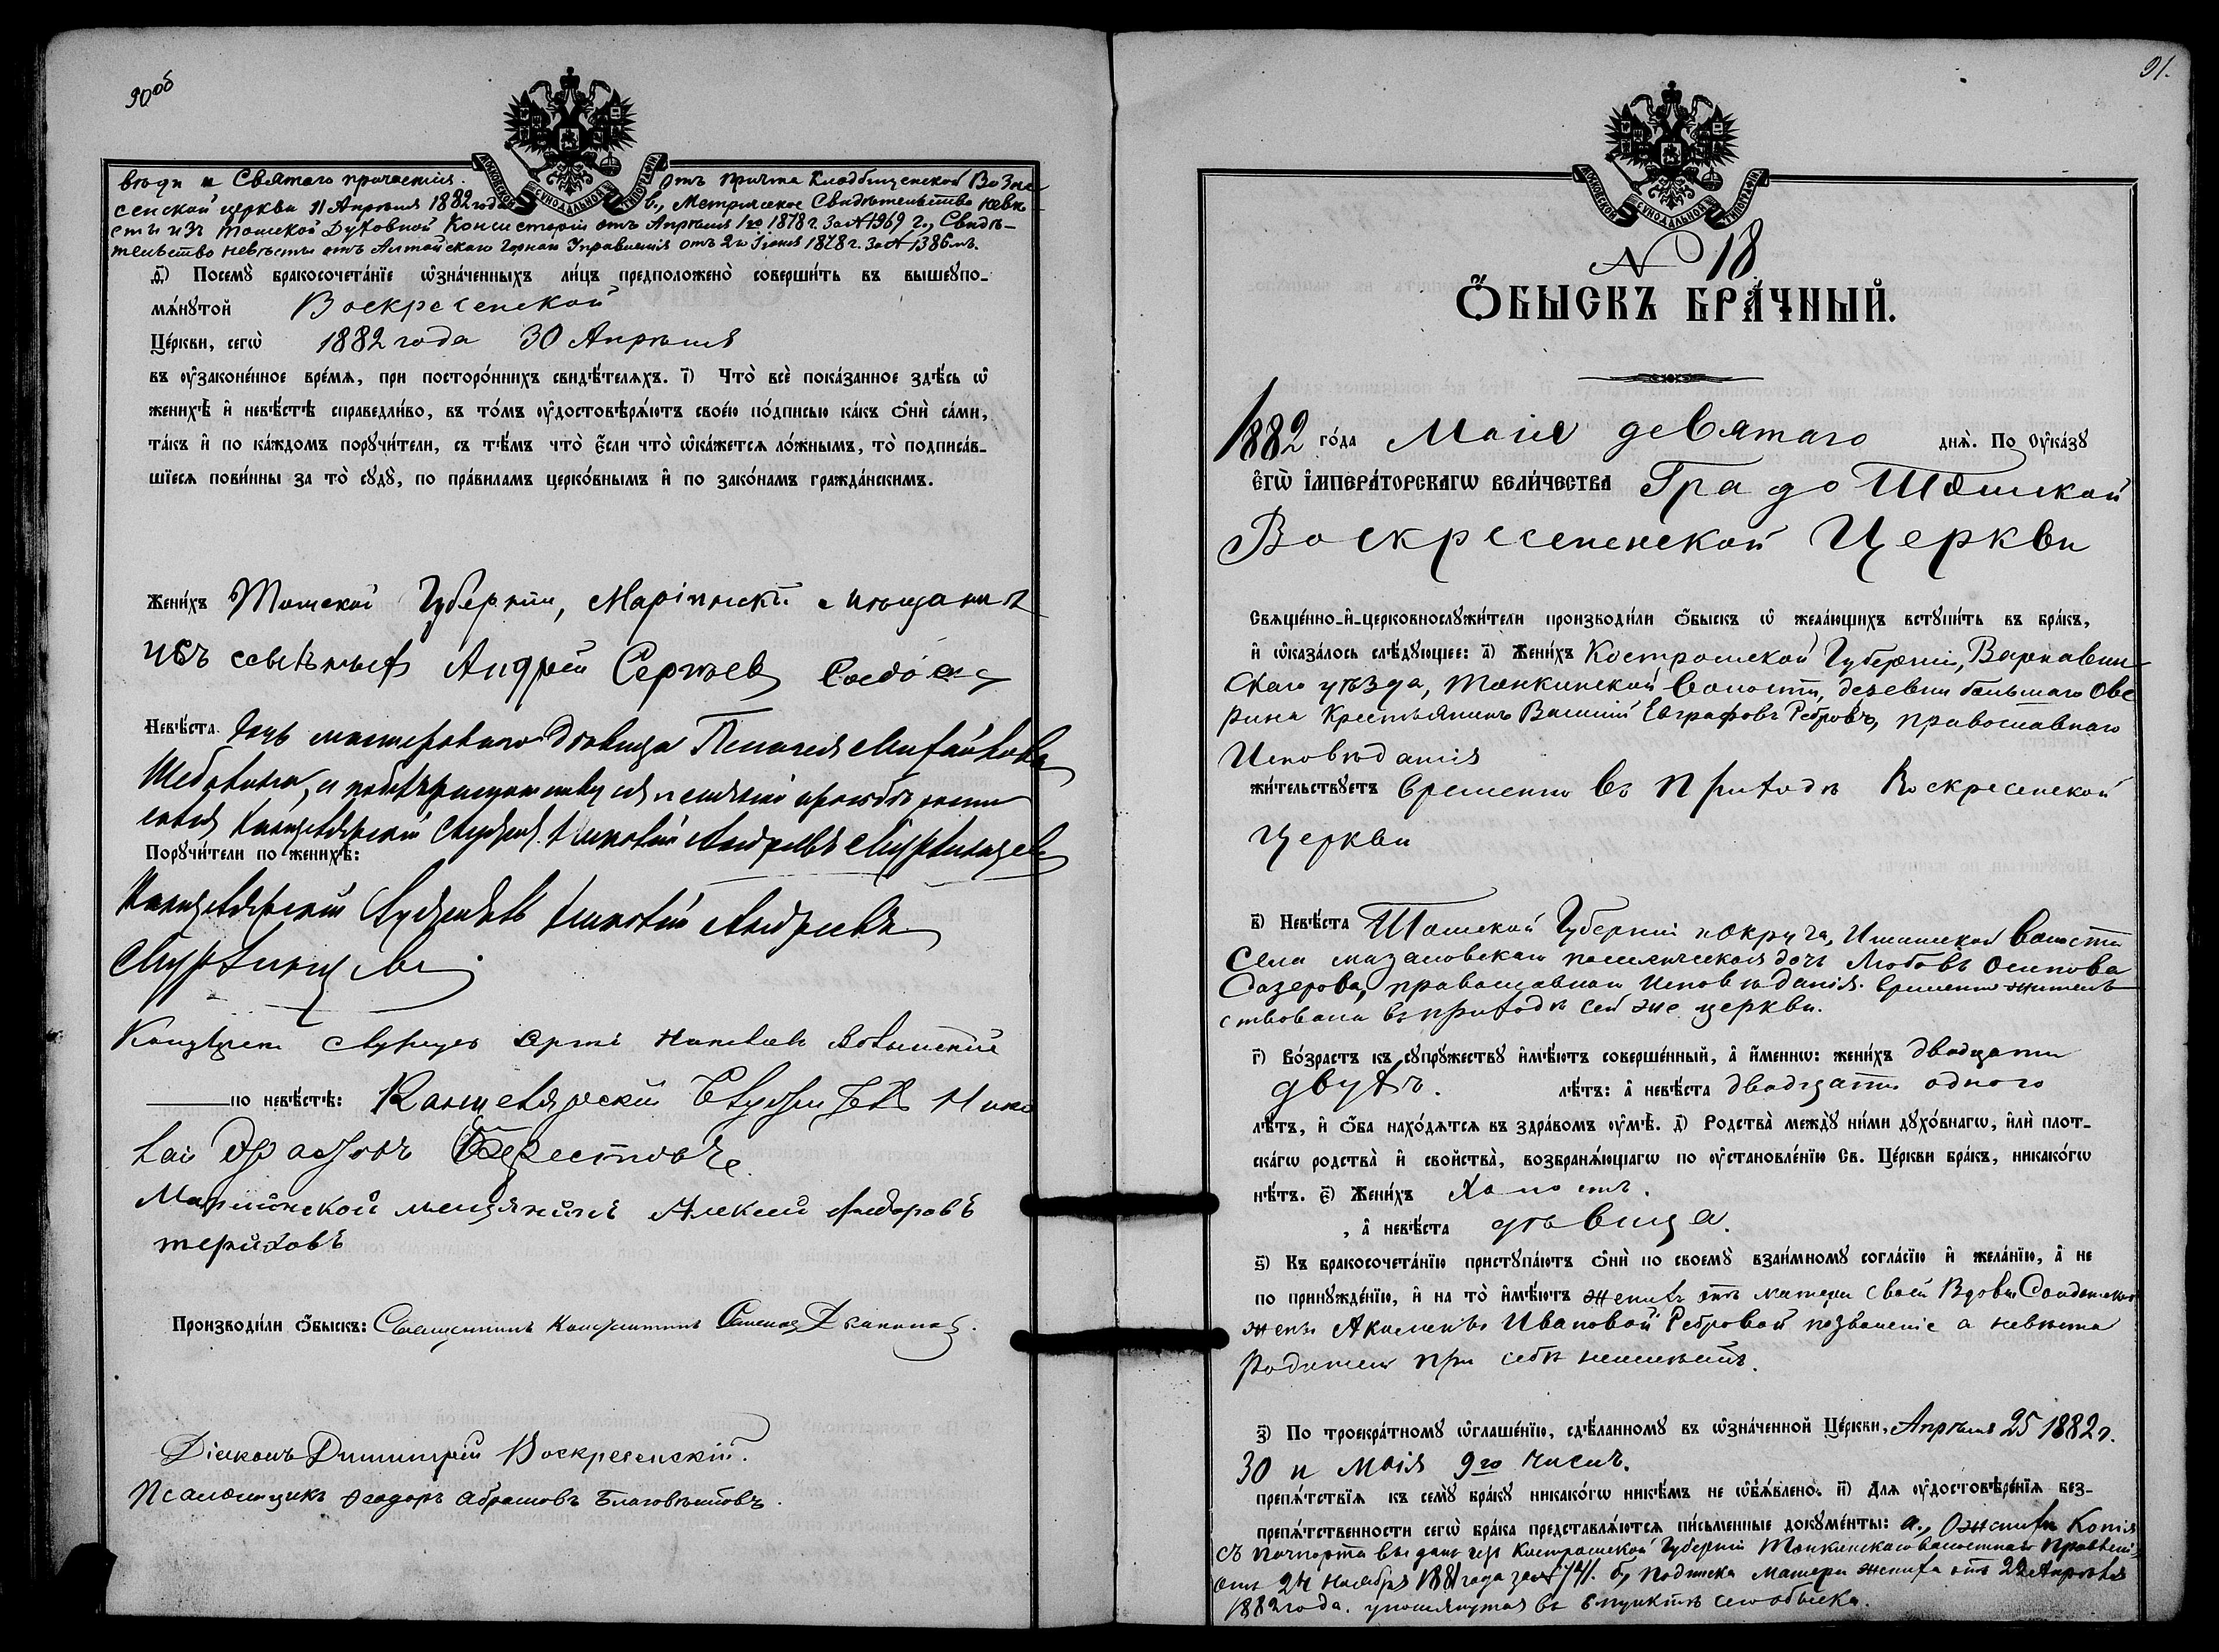 90об
вѣди и Святаго причастія. Отъ причта Кладбищенской Возне-
сенской церкви 11 Апрѣля 1882 года в., Метрическое Свидѣтельство невѣ-
сты изъ Томской Духовной Консисторіи отъ Апрѣля 1го 1878 г. за № 1969 г., Свидѣ-
тельство невѣсты отъ Алтайскаго Горнаго Управленія отъ 2го Іюня 1878 г. за № 1386мъ.
д҃) Посемꙋ̀ бракосочета́нїе ѡ҆зна́ченныхъ ли́цъ предположено̀ соверши́ть въ вышеꙋпо-
мѧ́нꙋтой Воскресенской
Це́ркви, сегѡ̀ 1882 года 30 Апрѣля
въ ᲂу҆законе́нное вре́мѧ, при посторо́ннихъ свидѣ́телѧхъ. і҃) Что̀ всѐ пока́занное здѣ́сь ѡ҆
женихѣ̀ и҆ невѣ́стѣ справедли́во, въ то́мъ ᲂу҆достовѣрѧ́ютъ свое́ю по́дписью ка́къ ѻ҆нѝ са́ми,
та́къ и҆ по ка́ждомъ порꙋчи́тели, съ тѣ́мъ что̀ є҆́сли что̀ ѡ҆ка́жетсѧ ло́жнымъ, то̀ подписа́в-
шїесѧ пови́нны за то̀ сꙋдꙋ̀, по пра́виламъ церко́внымъ и҆ по зако́намъ гражда́нскимъ.
Жени́хъ Томской Губерніи, Маріинскій мѣщанинъ
изъ ссыльныхъ Андрей Сергѣевъ
Невѣ́ста Дочь мастероваго дѣвица Пелагея Михайлова
канцелярскій служитель Андреевъ
Порꙋчи́тели по женихѣ̀:
Канцелярскій Служитель Андреевъ
по невѣ́стѣ: Канцелярскій Служитель Нико
лай Берестовъ
Маріинской мещанинъ Алексей Федоровъ
териховъ
Производи́ли ѻ҆́быскъ: Священникъ Константинъ
Діаконъ Димитрій Воскресенскій.
Псаломщикъ Ѳеодоръ Абрамовъ Благовѣстовъ.
91.
МОСКОВСКОЙ СѴНОДАЛЬНОЙ ТИПОГРАФІИ
N 18
Ѻ҆́БЫСКЪ БРА́ЧНЫЙ.
1882 го́да Маія девятаго днѧ̀. По Ѹ҆ка́зꙋ
Є҆гѡ̀ І҆мпера́торскагѡ вели́чества Градо Томской
Воскресенской Церкви
Свѧще́нно-и҆-церковнослꙋжи́тели произвoди́ли ѻ҆́быскъ ѡ҆ жела́ющихъ встꙋпи́ть въ бра́къ,
и҆ ѡ҆каза́лось слѣ́дꙋющее: а҃) Жени́хъ Костромской Губерніи, Варнавин-
скаго уѣзда, Тонкинской волости, деревни большаго Ове
рина Крестьянинъ Василій Евграфовъ Ребровъ, православнаго
Исповѣданія
жи́тельствꙋетъ временно въ приходѣ Воскресенской
церкви
в҃) Невѣ́ста Томской Губерніи и округа, Ишимской волости
Села мазаловскаго поселенческая дочь Любовь Осипова
Сазерова, православнаго исповѣданія. временно житель
ствовала въ приходѣ сей же церкви.
г҃) Во́зрастъ къ сꙋпрꙋ́жествꙋ и҆мѣ́ютъ соверше́нный, а҆ и҆́меннѡ: жени́хъ двадцати
двухъ. лѣ́тъ: а҆ невѣ́ста двадцати одного
лѣ́тъ, и҆ ѻ҆́ба нахо́дѧтсѧ въ здра́вомъ ᲂу҆мѣ̀. д҃) Родства̀ междꙋ̀ ни́ми дꙋхо́внагѡ, и҆лѝ плот-
ска́гѡ родства̀ и҆ свойства̀, возбранѧ́ющагѡ по ᲂу҆становле́нїю Св. Це́ркви бра́къ, никако́гѡ
нѣ́тъ. є҃) Жени́хъ холостъ.
, а҆ невѣ́ста дѣвица.
ѕ҃) Къ бракосочета́нїю пристꙋпа́ютъ ѻ҆нѝ по своемꙋ̀ взаи́мномꙋ согла́сїю и҆ жела́нїю, а҆ не
по принꙋжде́нїю, и҆ на то̀ и҆мѣ́ютъ женихъ отъ матери своей Вдовы Солдатской
жены Акилины Ивановой Ребровой позволеніе а невѣста
родителей при себѣ неимѣетъ.
з҃) По троекра́тномꙋ ѡ҆глаше́нїю, сдѣ́ланномꙋ въ ѡ҆зна́ченной Це́ркви, Апрѣля 25 1882 г.
30 и Маія 9го чиселъ.
препѧ́тствїѧ къ семꙋ̀ бра́кꙋ никако́гѡ никѣ́мъ не ѡ҆б̾ѧ́влено. и҃) Длѧ ᲂу҆достовѣре́нїѧ без-
препѧ́тственности сегѡ̀ бра́ка представлѧ́ютсѧ пи́сьменные докꙋме́нты: а., О женихѣ Копія
съ пачпорта выданнаго Костромской Губерніи Тонкинскаго волостнаго Правленія
отъ 24 Ноября 1881 года за № 741. б., подписка Матери жениха отъ 22 Апрѣля
1882 года. упомянутая въ 6 пунктѣ сего обыска.